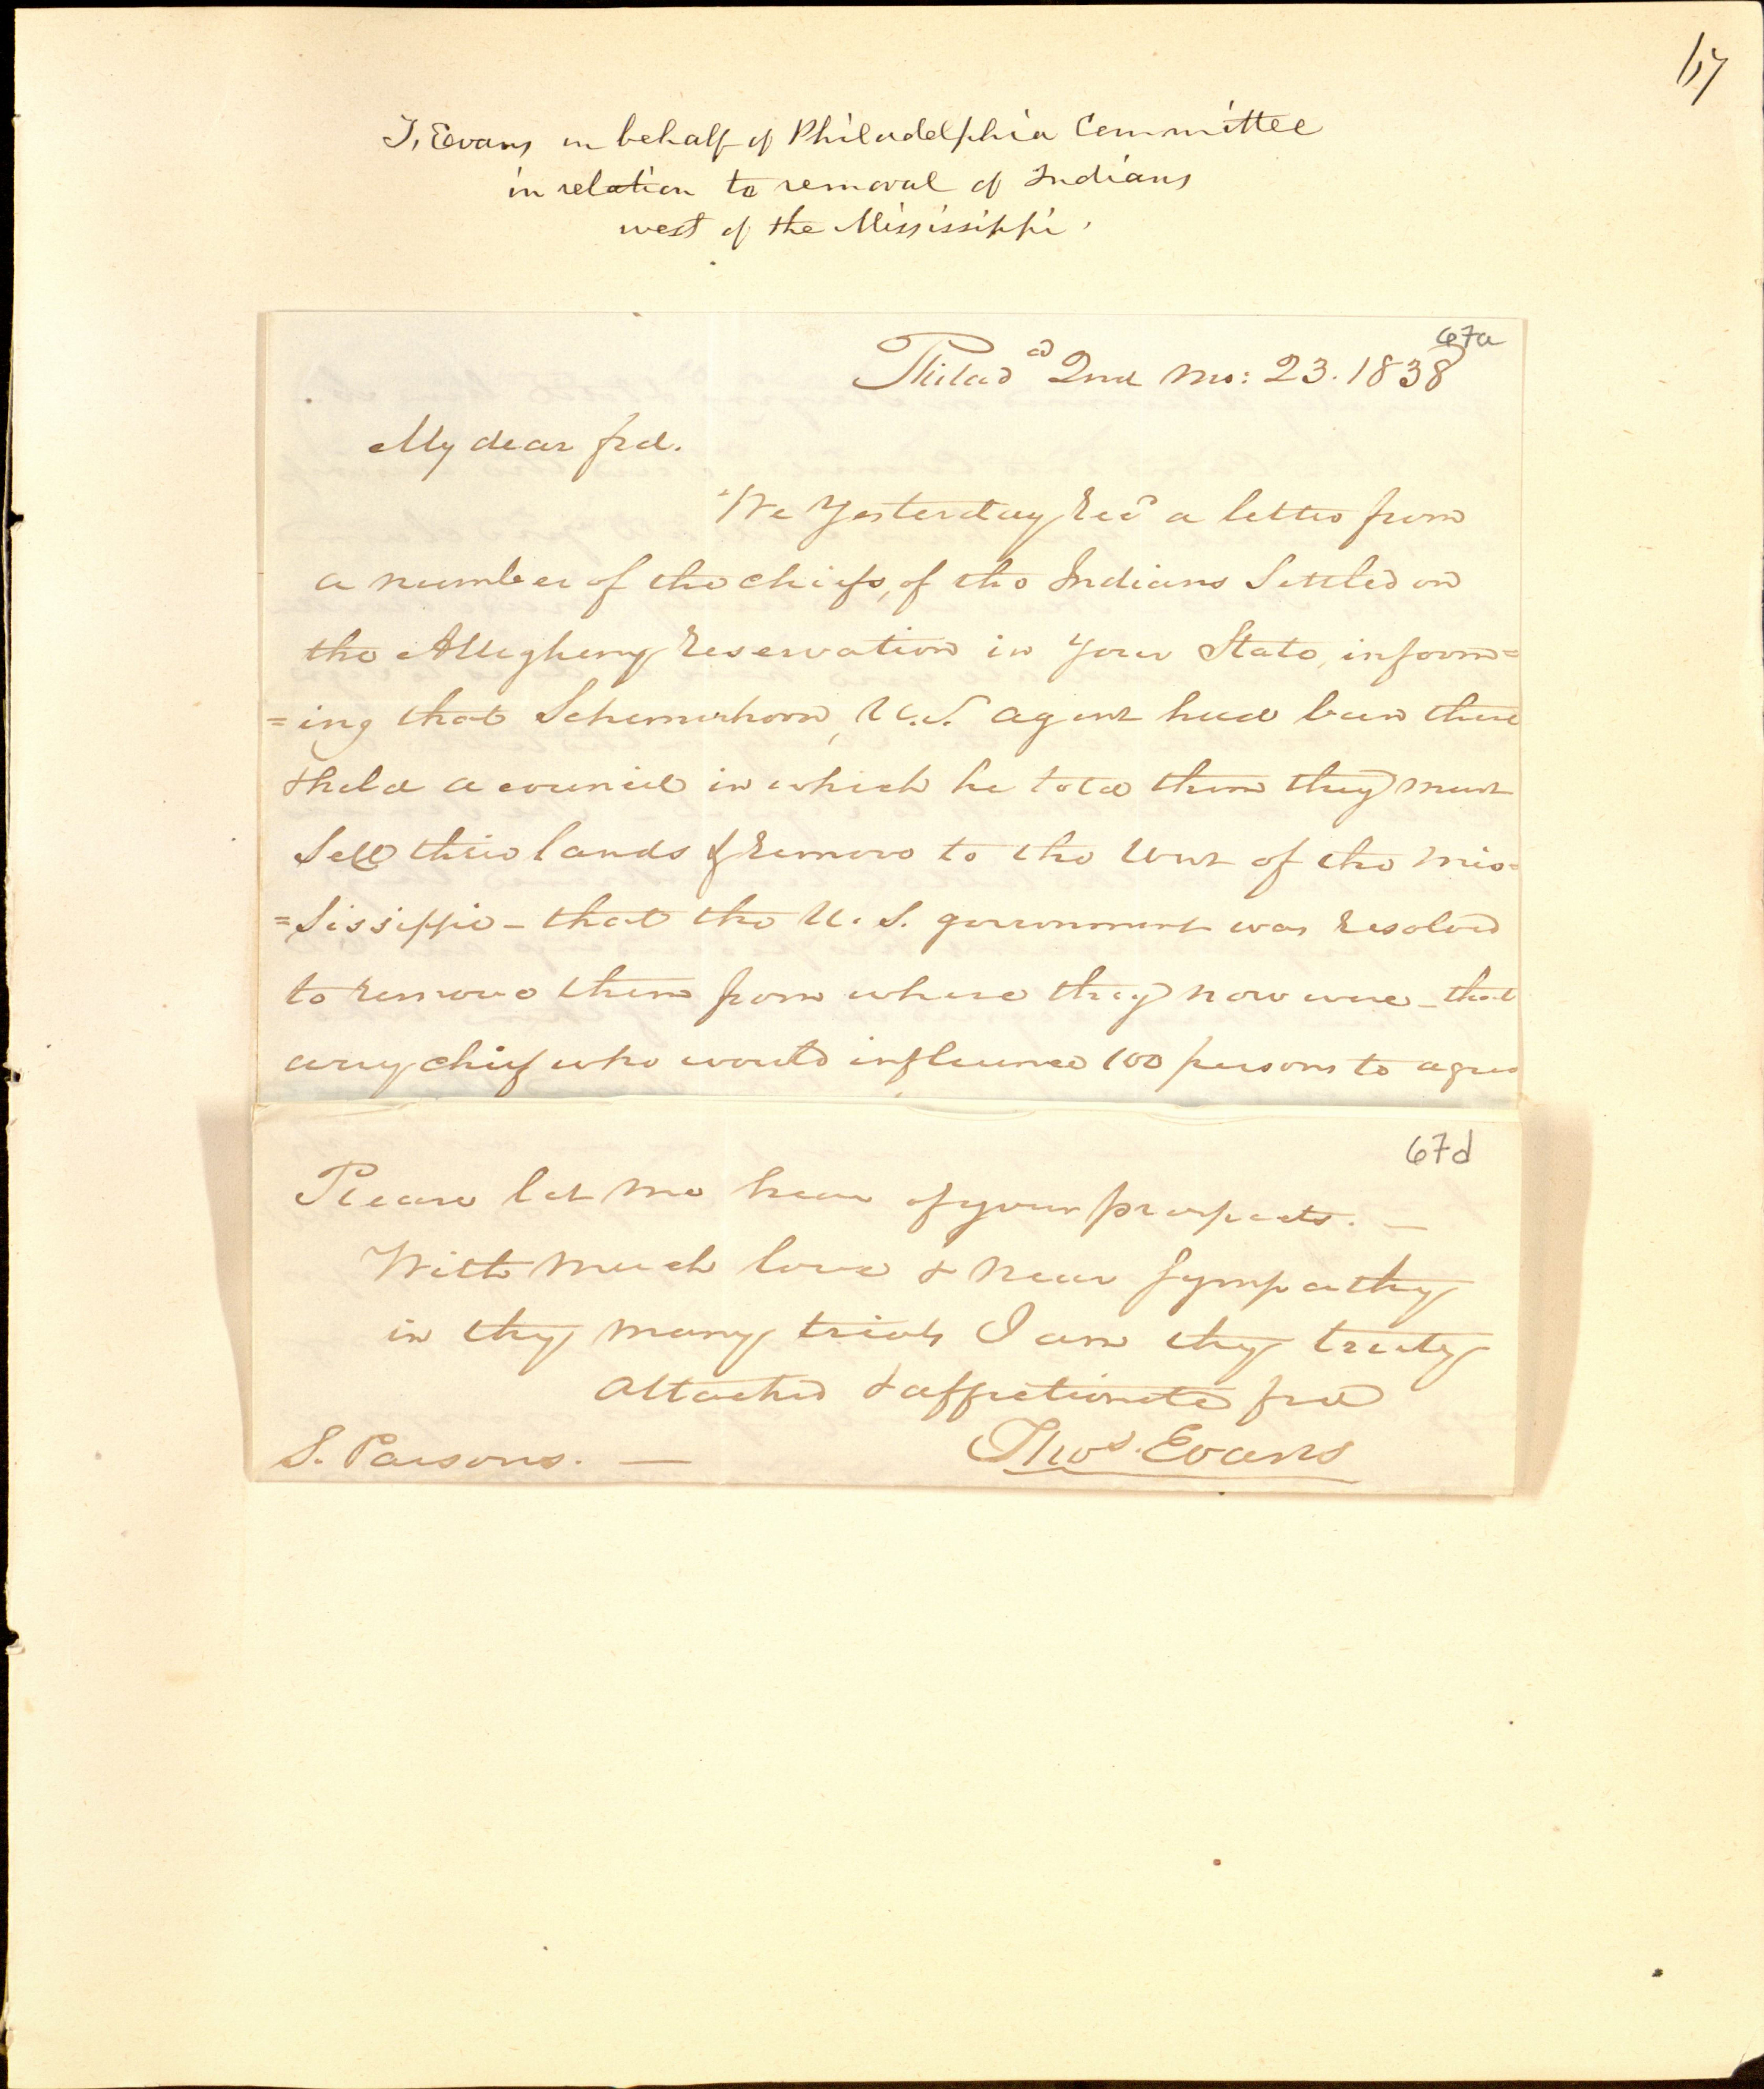 67
T. Evans in behalf of Philadelphia Committee
in relation to removal of Indians
west of the Mississippi.
67a
Philada 2nd mo: 23. 1838
My dear frd.
We yesterday recd a letter from
a number of the chiefs, of the Indians settled on
the Allegheny reservation in your State, inform=
=ing that Schemerhorn, U.S. agent had been there
& held a council in which he told them they must
sell their lands & remove to the West of the Mis=
=sissippi - that the U. S. government was resolved
to remove them from where they now were - that
any chief who would influence 100 persons to agree
67d
Please let me hear of your prospects. —
With much love & near sympathy
in thy many trials I am thy truly
attached & affectionate frd
S. Parsons. — Thos. Evans